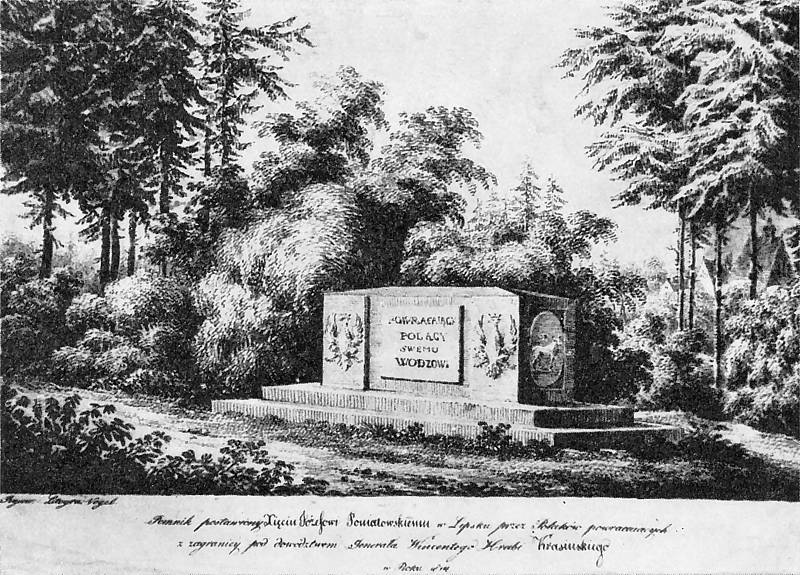 POWRACAIĄCY
POLACY
SWEMU
WODZOWI
Zygmu Vogel
Pomnik postawiony Xięciu Józefowi Poniatowskiemu w Lipsku przez Polaków powracaiących
z zagranicy pod dowództwem Generała Wincentego Hrabi Krasińskiego
w Roku